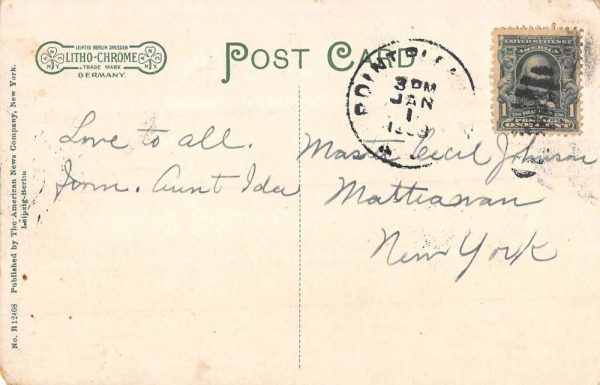 LEIPZIG BERLIN DRESDEN
LITHO-CHROME
TRADE MARK
GERMANY.
POST CARD
3 PM
JAN
1
UNITED STATES OF AMERICA
1 POSTAGE 1
ONE CENT
Love to all.
From. Aunt Ida
Master Cecil Johnson
Matteawan
New York
No. B 12408 Published by The American News Company, New York.
Leipzig-Berlin